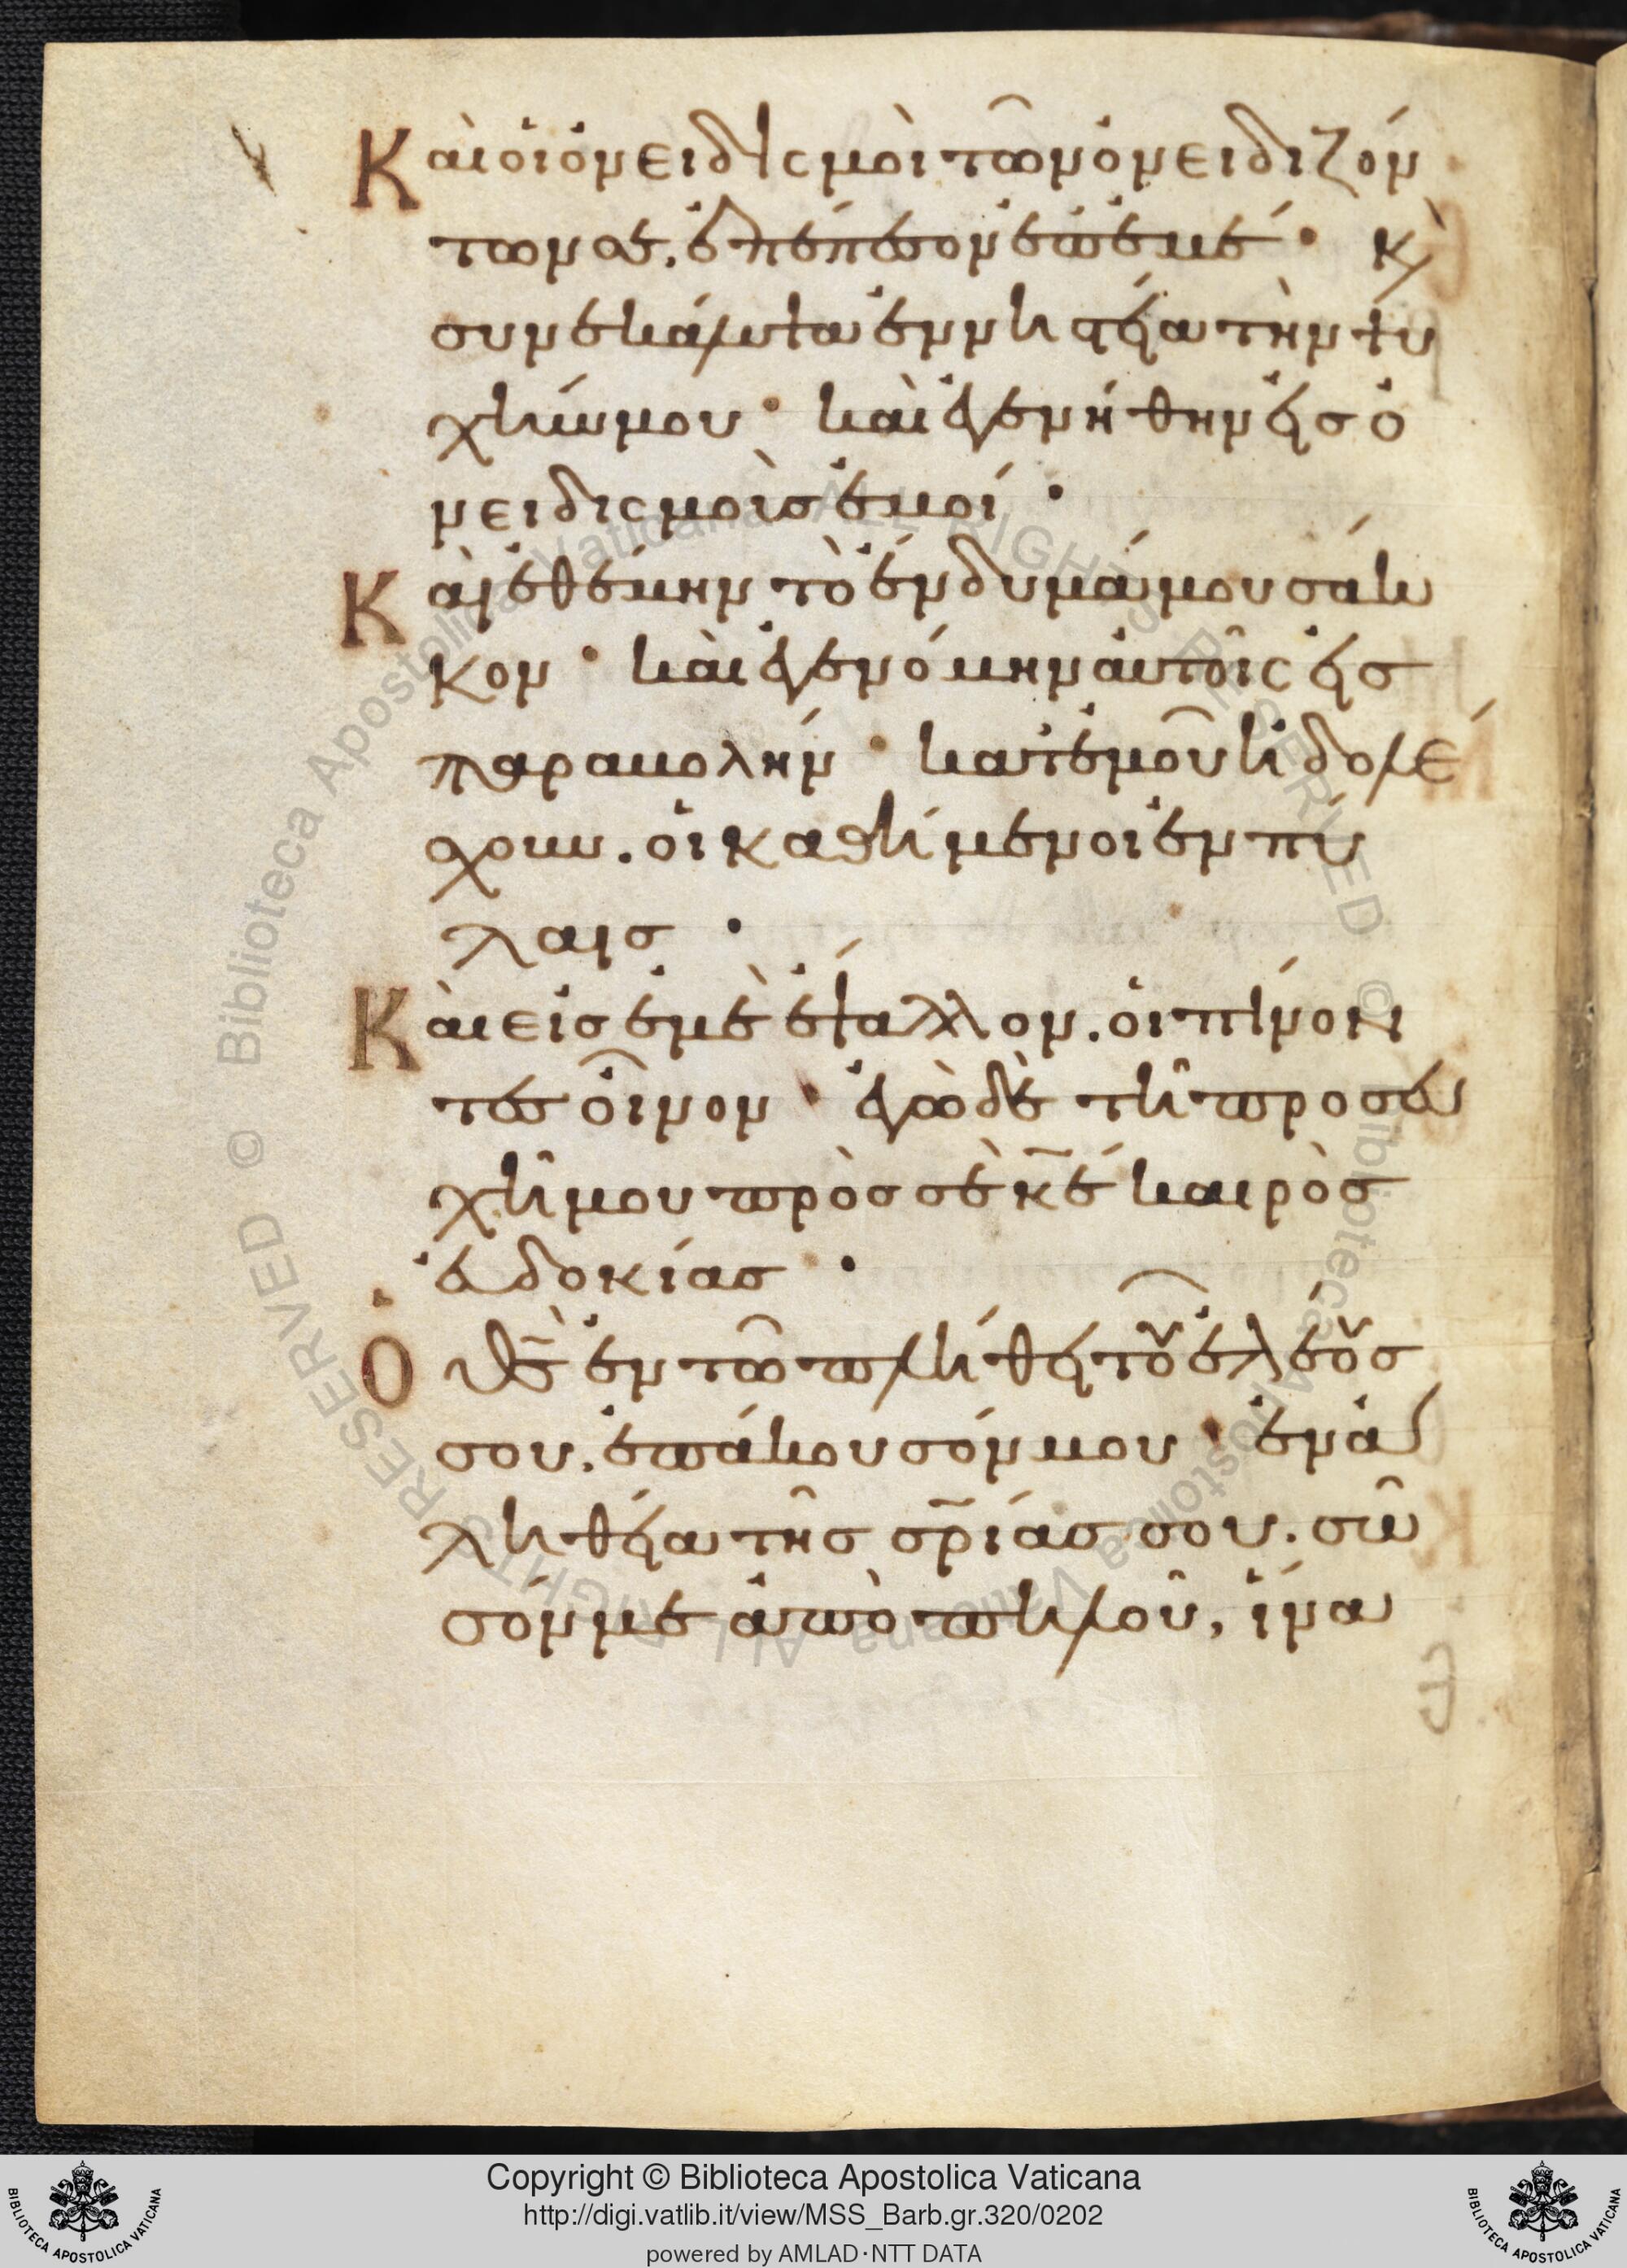 Καὶ οἱ ὀνειδισμοὶ τῶν ὀνειδιζόν
των σε. ἐπέπεσον ἐπ' ἐμέ· κ(αὶ)
συνέκαμψα ἐν νηστείᾳ τὴν ψυ
χήν μου· καὶ ἐγενήθην εἰς ὀ
νειδισμοὺς ἐμοί·
Καὶ ἐθέμην τὸ ἔνδυμά μου σάκ
κον· καὶ ἐγενόμην αὐτοῖς εἰς
παραβολήν· κατ' ἐμοῦ ἠδολέ
σχουν. οἱ καθήμενοι ἐν πύ
λαις·
Καὶ εἰς ἐμὲ ἔψαλλον. οἱ πίνον
τες οἶνον· ἐγὼ δὲ τῇ προσευ
χῇ μου πρὸς σὲ κ̅ε̅ καιρὸς
εὐδοκίας·
Ὁ θ̅ς̅ ἐν τῷ πλήθει τοῦ ἐλέους
σου. ἐπάκουσόν μου· ἐν ἀ
ληθείᾳ τῆς σ̅ρ̅ίας σου. σῶ
σόν με ἀπὸ πηλοῦ, ἵνα
Copyright © Biblioteca Apostolica Vaticana
http://digi.vatlib.it/view/MSS_Barb.gr.320/0202
powered by AMLAD·NTT DATA
BIBLIOTECA APOSTOLICA VATICANA
BIBLIOTECA APOSTOLICA VATICANA
© Biblioteca Apostolica Vaticana ALL RIGHTS RESERVED © Biblioteca Apostolica Vaticana ALL RIGHTS RESERVED